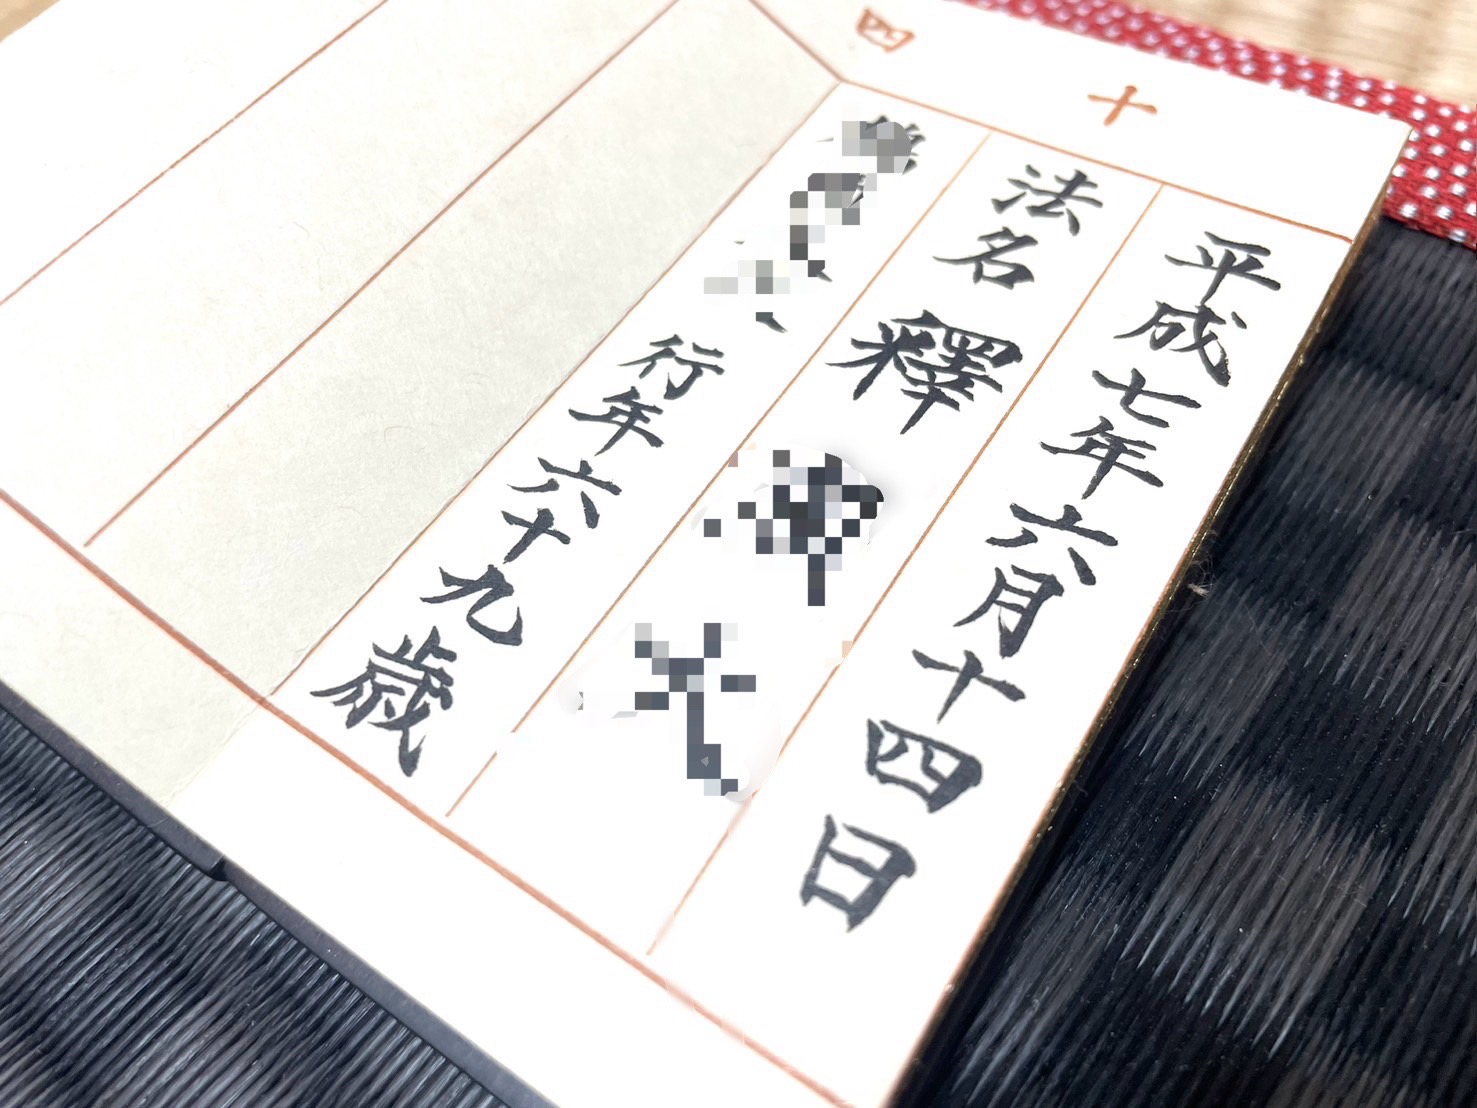 十四
平成七年六月十四日
法名 釋
行年六十九歳